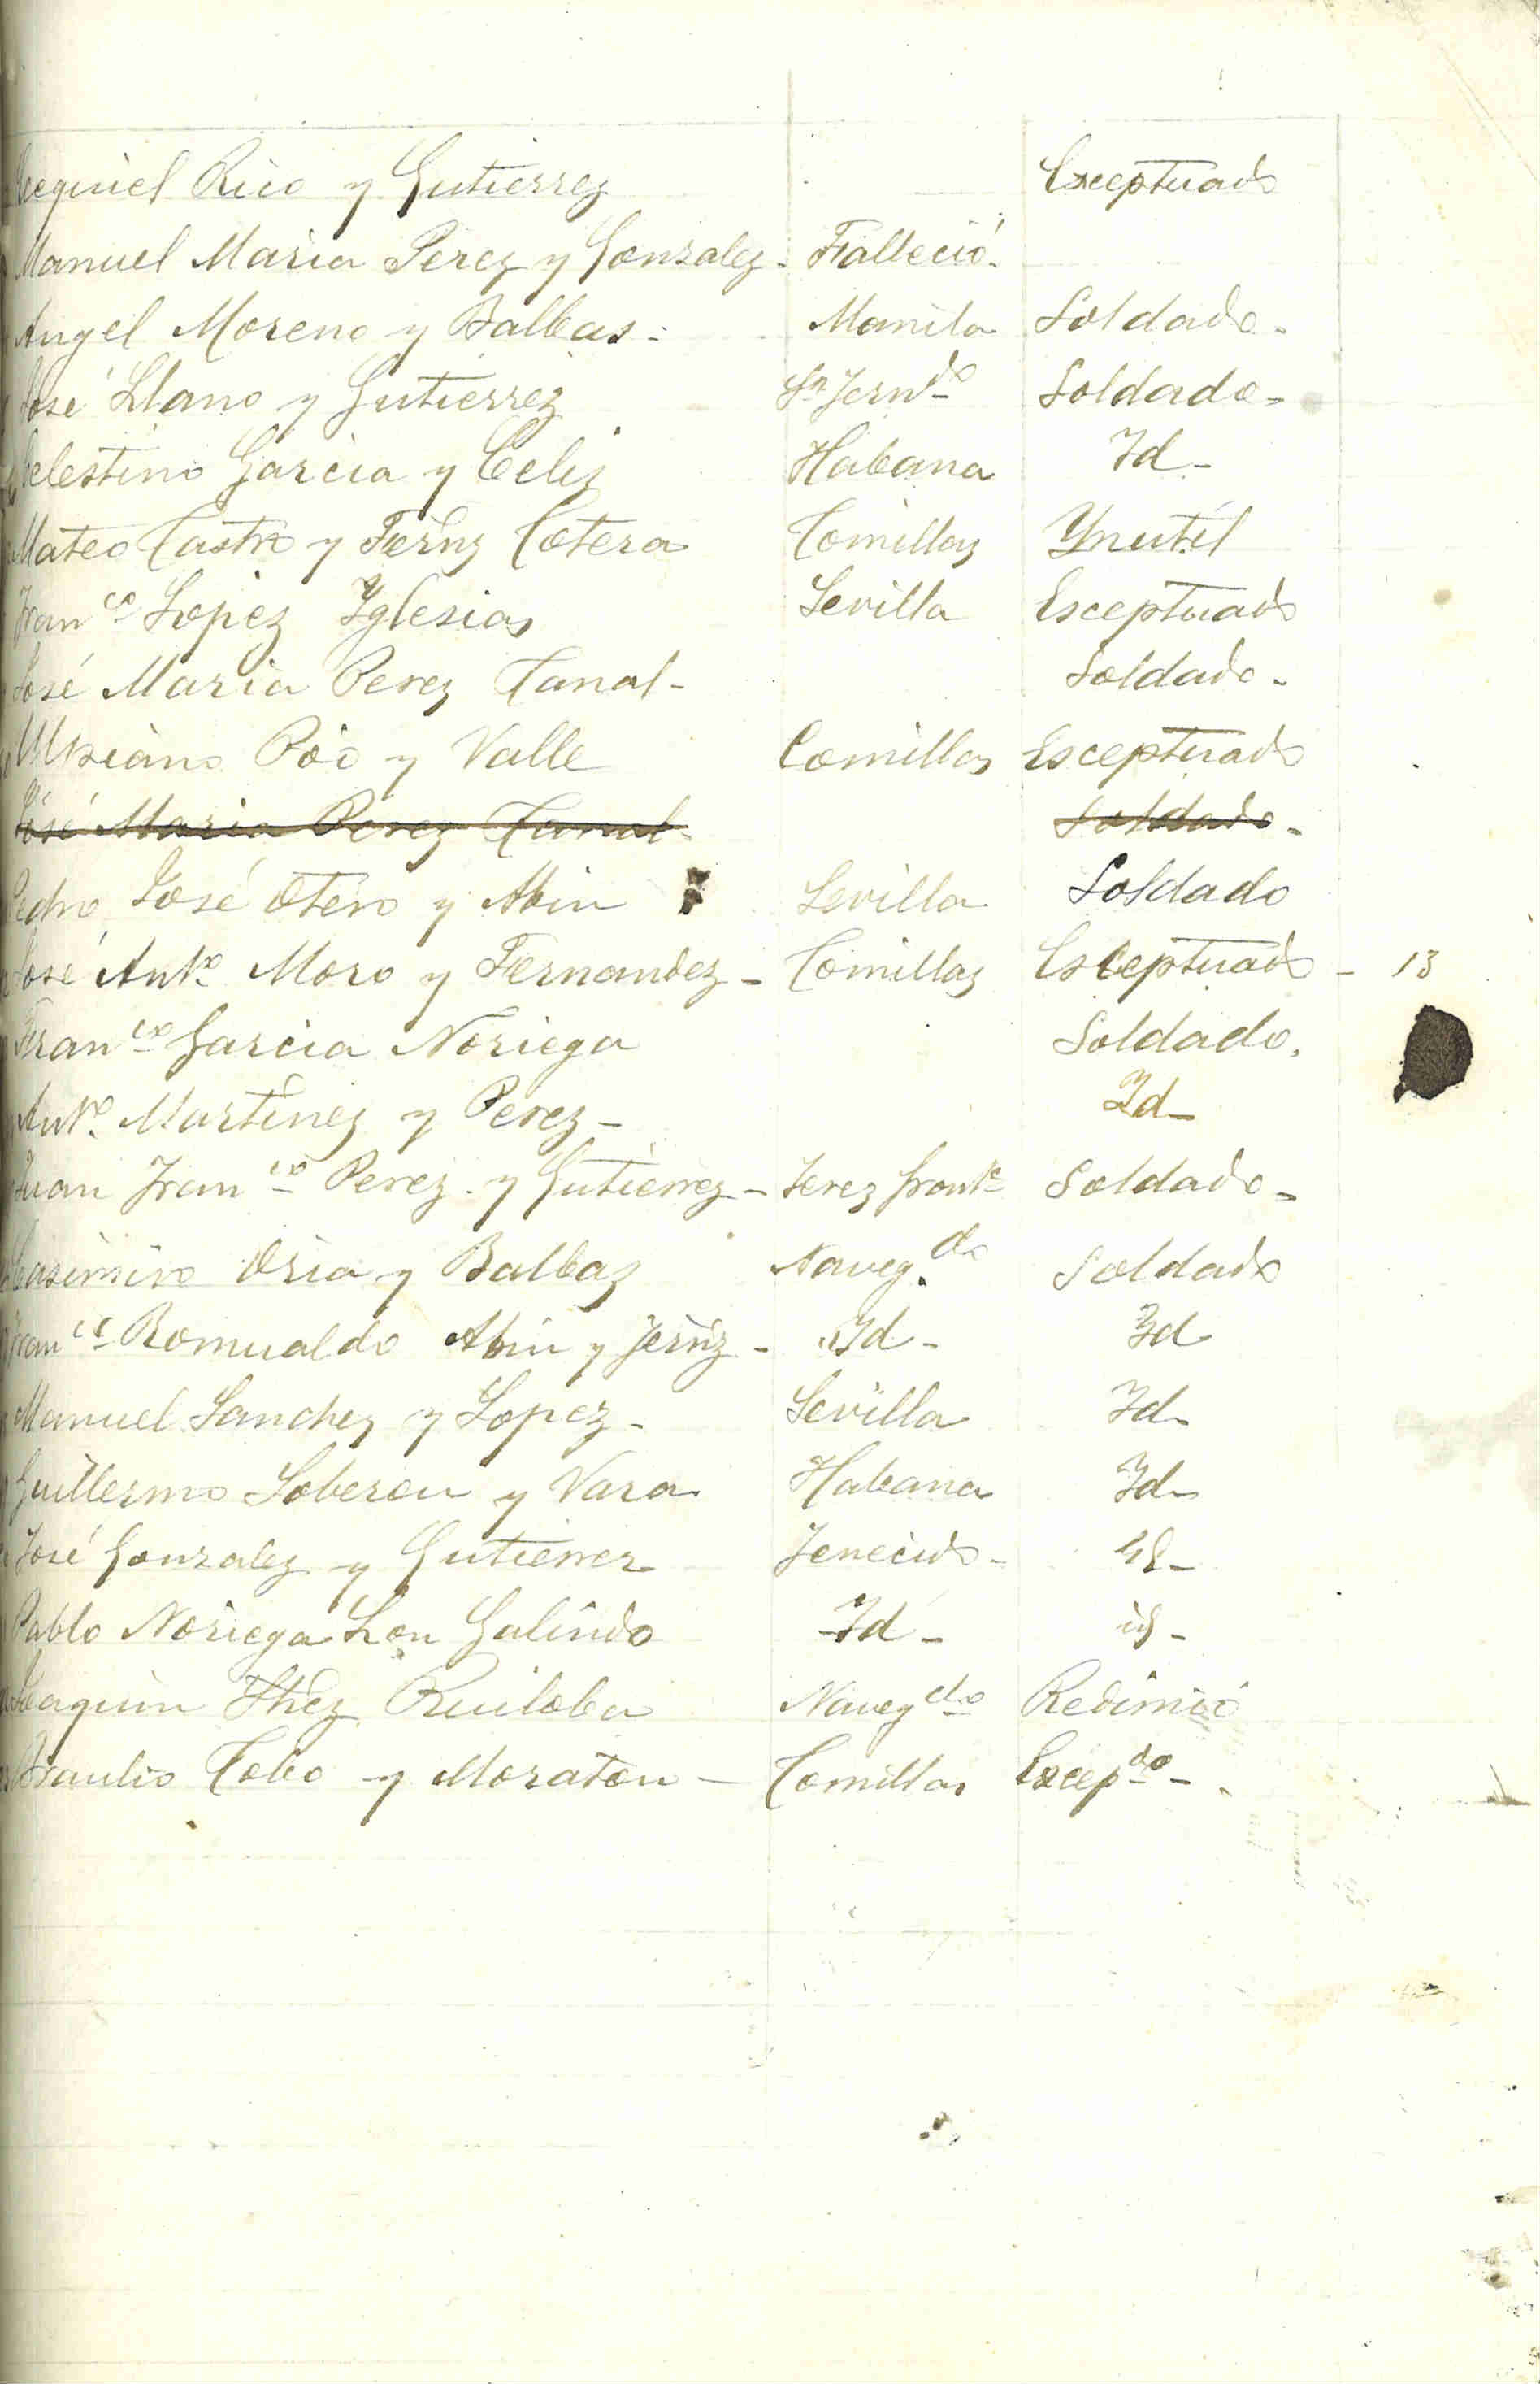 Ecequiel Rico y Gutierrez Exceptuado
Manuel Maria Perez y Gonzalez - Falleció -
Angel Moreno y Balbas - Manila Soldado -
José Llano y Gutierrez Sn Ferndo Soldado -
Celestino Garcia y Celiz Habana Id -
Mateo Castro y Fernz Cotera Comillas Ynutil
Franco Lopez Yglesias Sevilla Esceptuado
José Maria Perez Canal - Soldado -
Ulpiano Póo y Valle Comillas Esceptuado
José Maria Perez Canal - Soldado -
Pedro José Otero y Abin Sevilla Soldado
José Anto Moro y Fernandez - Comillas Esceptuado - 13
Franco Garcia Noriega Soldado.
Anto Martinez y Perez - Id -
Juan Franco Perez y Gutierrez - Jerez fronta Soldado -
Casimiro Oria y Balbaz Navegdo Soldado
Franco Romualdo Abin y Fernz - Id - Id
Manuel Sanchez y Lopez - Sevilla Id -
Guillermo Soberon y Vara Habana Id -
José Gonzalez y Gutierrez Fenecido - Id -
Pablo Noriega Lon Galindo Id - id -
Joaquin Ruiloba Navegdo Redimió
Braulio Cobo y Moraton - Comillas Excepdo -